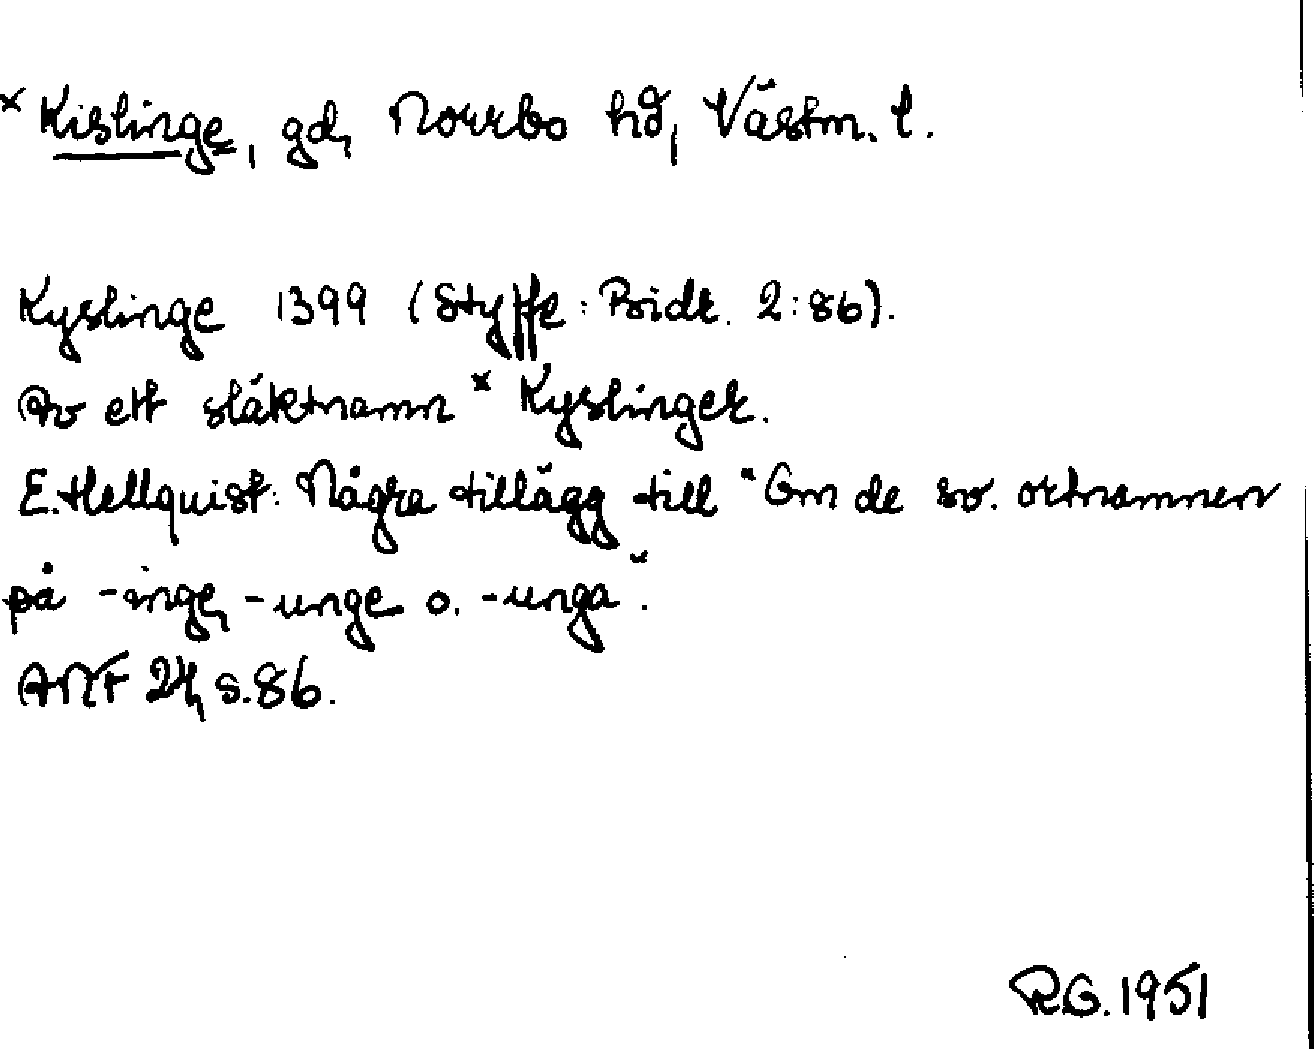 * Kislinge, gd, Norrbo hd, Västm. l.
Kyslinge 1399 (Styffe: Bidr. 2:86).
Av ett släktnamn * Kyslingar.
E. Hellquist: Några tillägg till "Om de sv. ortnamnen
på -inge, -unge o. -unga".
ANF 24, s. 86.
RG. 1951